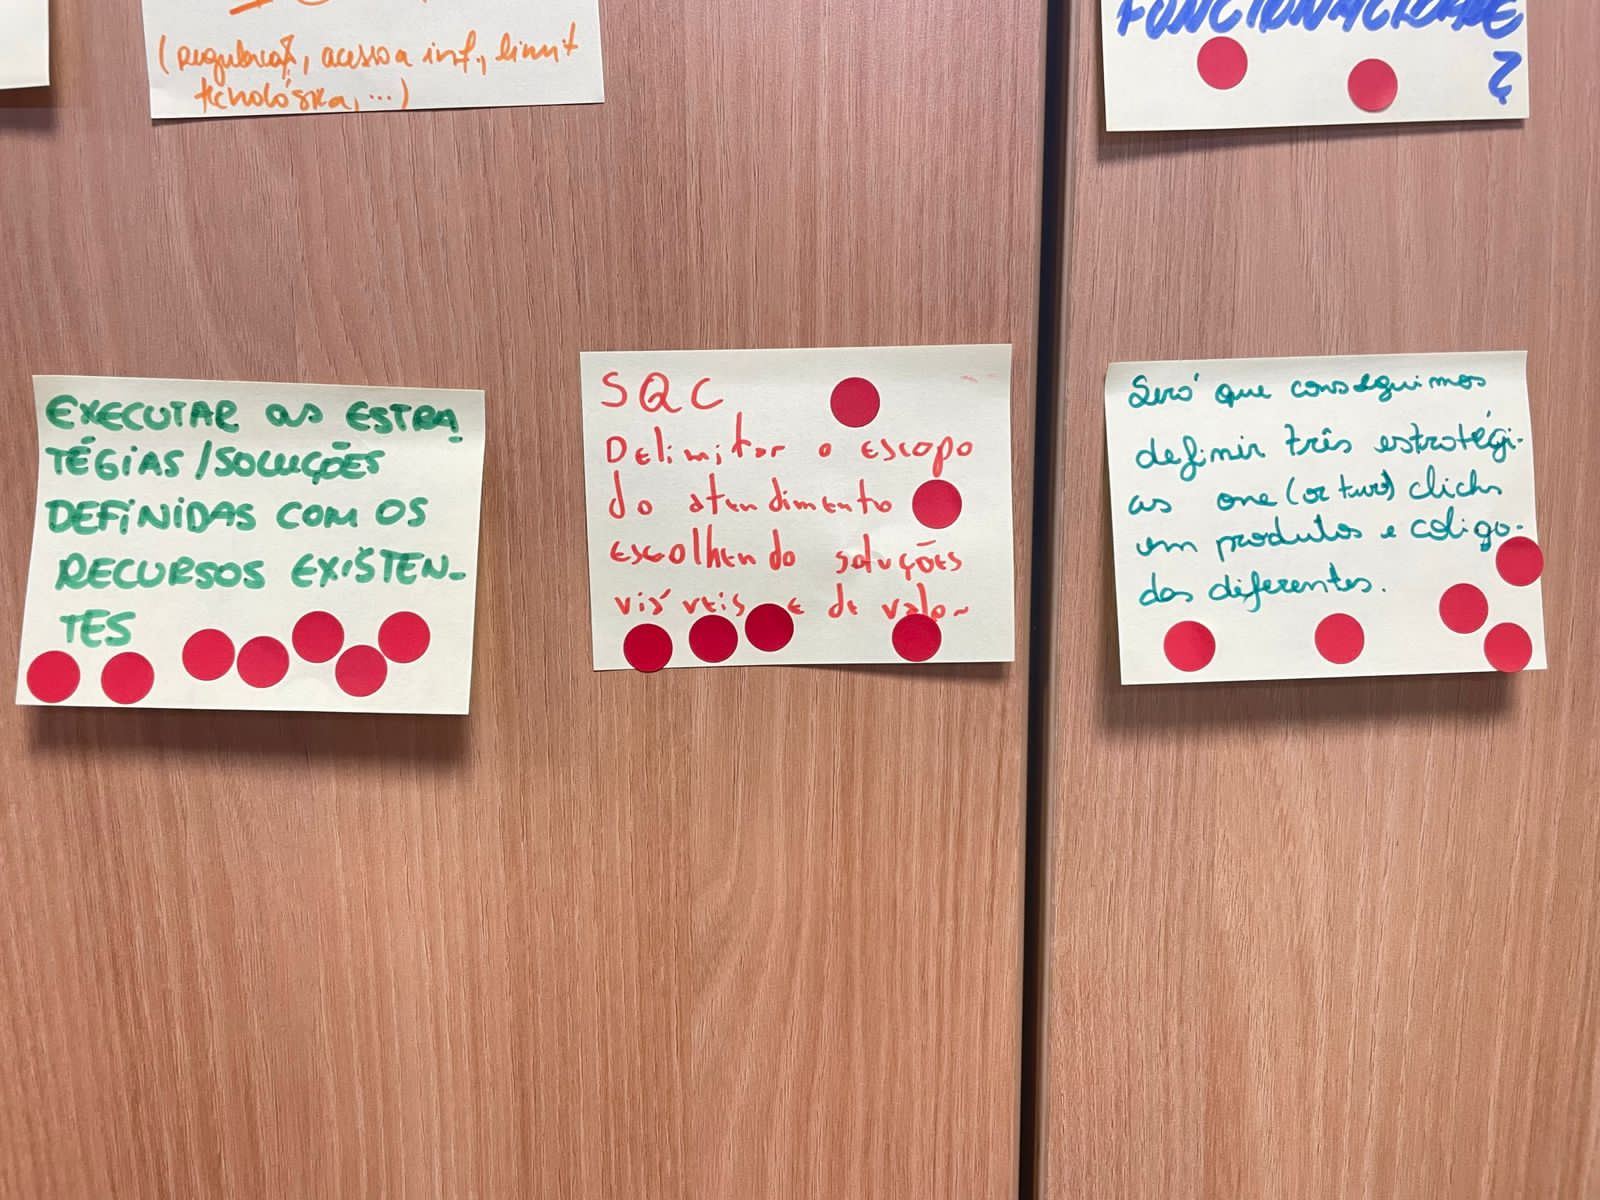 (regulaçã, acesso a inf., limit
tecnológica, ...)
FUNCIONALIDADE
?
EXECUTAR AS ESTRA
TÉGIAS/SOLUÇÕES
DEFINIDAS COM OS
RECURSOS EXISTEN-
TES
SQC
Delimitar o escopo
do atendimento
escolhendo soluções
visíveis e de valor
Será que conseguimos
definir três estratégi-
as one (or two) clicks
em produtos e códigos
das diferentes.